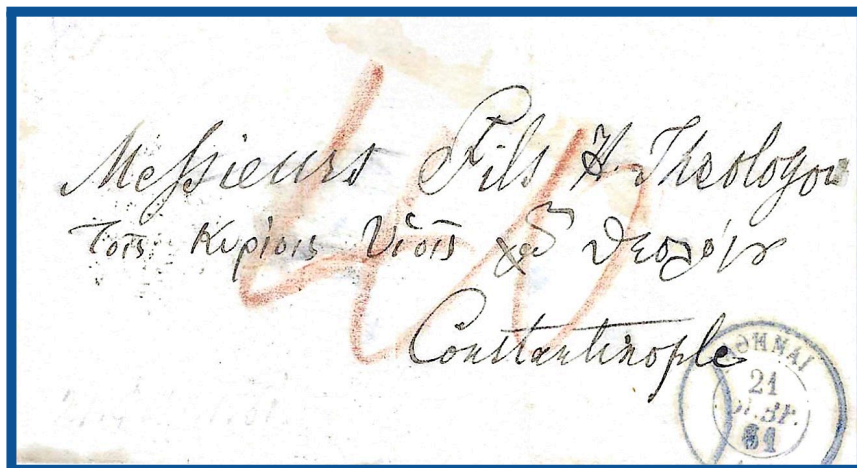 Messieurs Fils H. Theologou
Τοῖς Κυρίοις Υἱοῖς χδ Θεολόγου
Constantinople
40
ΑΘΗΝΑΙ
21
61